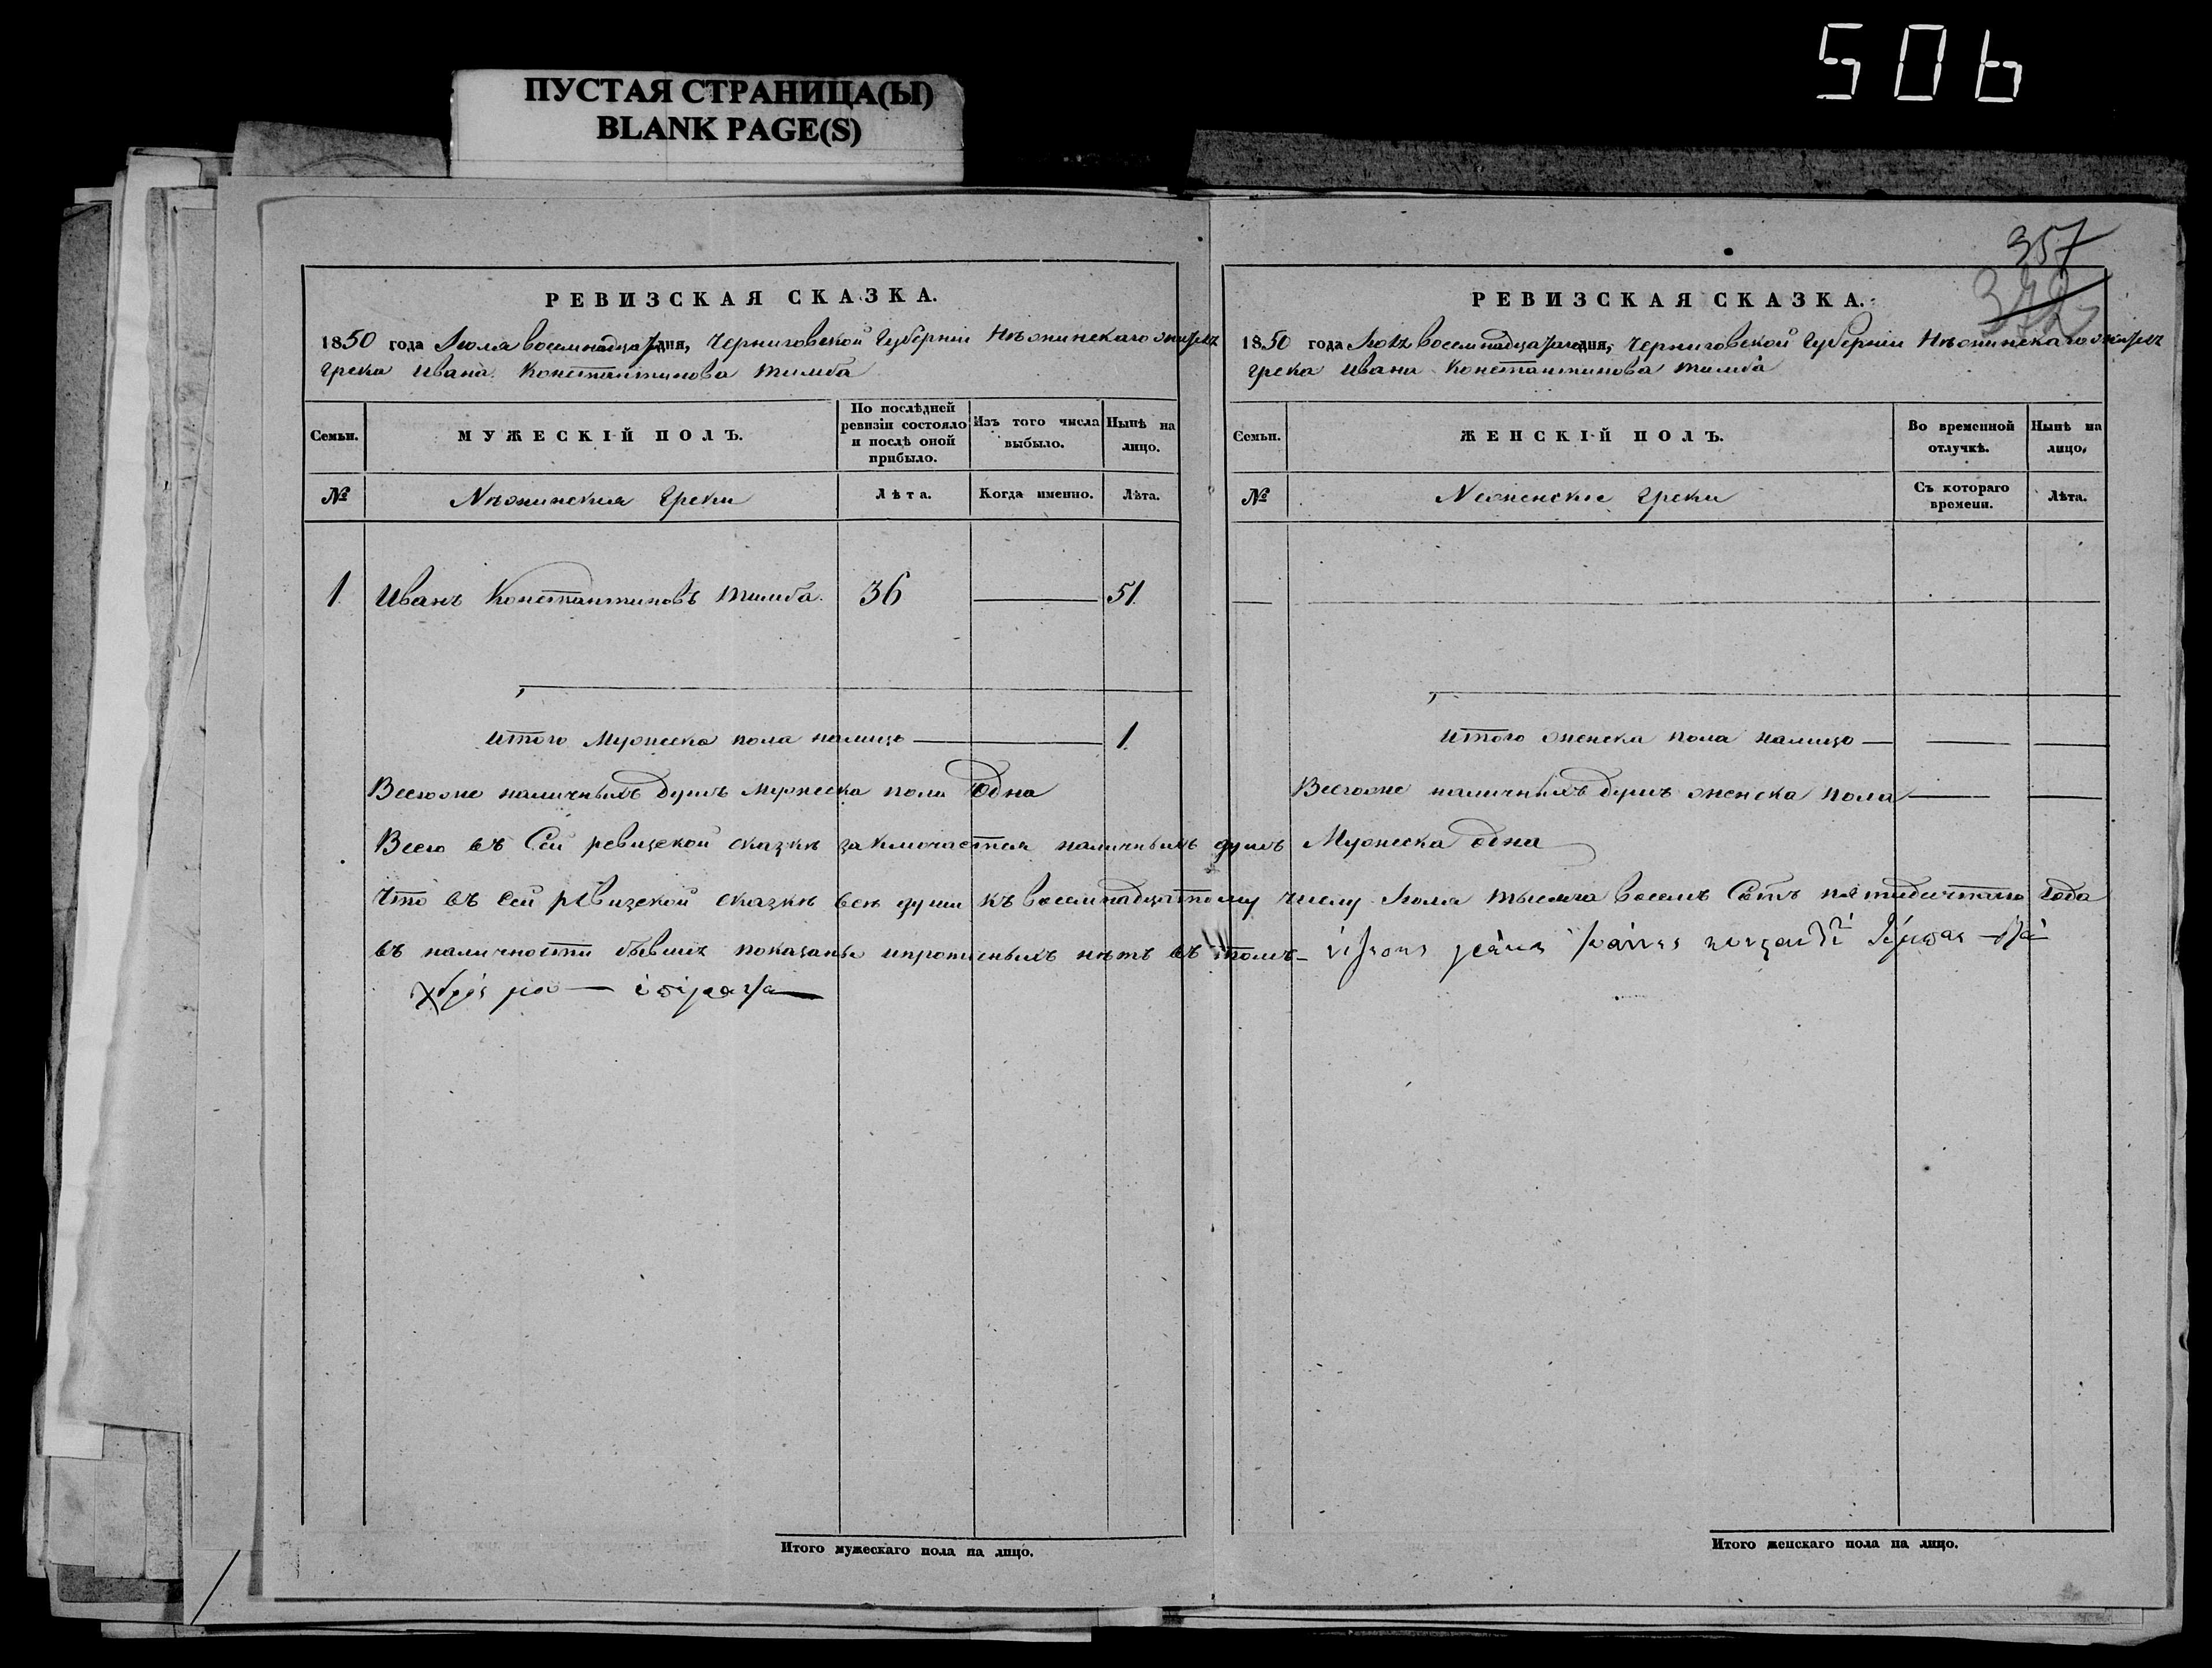 506
ПУСТАЯ СТРАНИЦА(Ы)
BLANK PAGE(S)
РЕВИЗСКАЯ СКАЗКА.
1850 года Июля восемнадца дня, Черниговской Губернiи Нѣжинскаго
грека Ивана Константинова Тимба
Семьи.
МУЖЕСКIЙ ПОЛЪ.
По послѣдней ревизiи состояло и послѣ оной прибыло.
Изъ того числа выбыло.
Нынѣ на лицо.
№
Нѣжинския Греки
Лѣта.
Когда именно.
Лѣта.
1 Иванъ Константиновъ Тимба. 36 — 51.
итого Мужеска пола налицо — 1.
Всегоже наличныхъ душъ мужеска пола Одна
357
РЕВИЗСКАЯ СКАЗКА.
1850 года восемнадца дня, Черниговской Губернiи Нѣжинскаго
грека Ивана Константинова Тимба
Семьи.
ЖЕНСКIЙ ПОЛЪ.
Во временной отлучкѣ.
Нынѣ на лицо.
№
Неженские Греки
Съ котораго времени.
Лѣта.
итого женска пола налицо —
Всегоже наличныхъ душъ женска пола —
Всего въ Сей ревизской сказкѣ заключается наличныхъ душъ Мужеска одна
Что въ сей ревизской сказкѣ всѣ души къ восемнадцатому числу Июля тысяча восемь Сотъ пятидесятаго года
въ наличности бывших показаны ипропис­ныхъ нѣтъ въ томъ
Итого мужескаго пола на лицо.
Итого женскаго пола на лицо.